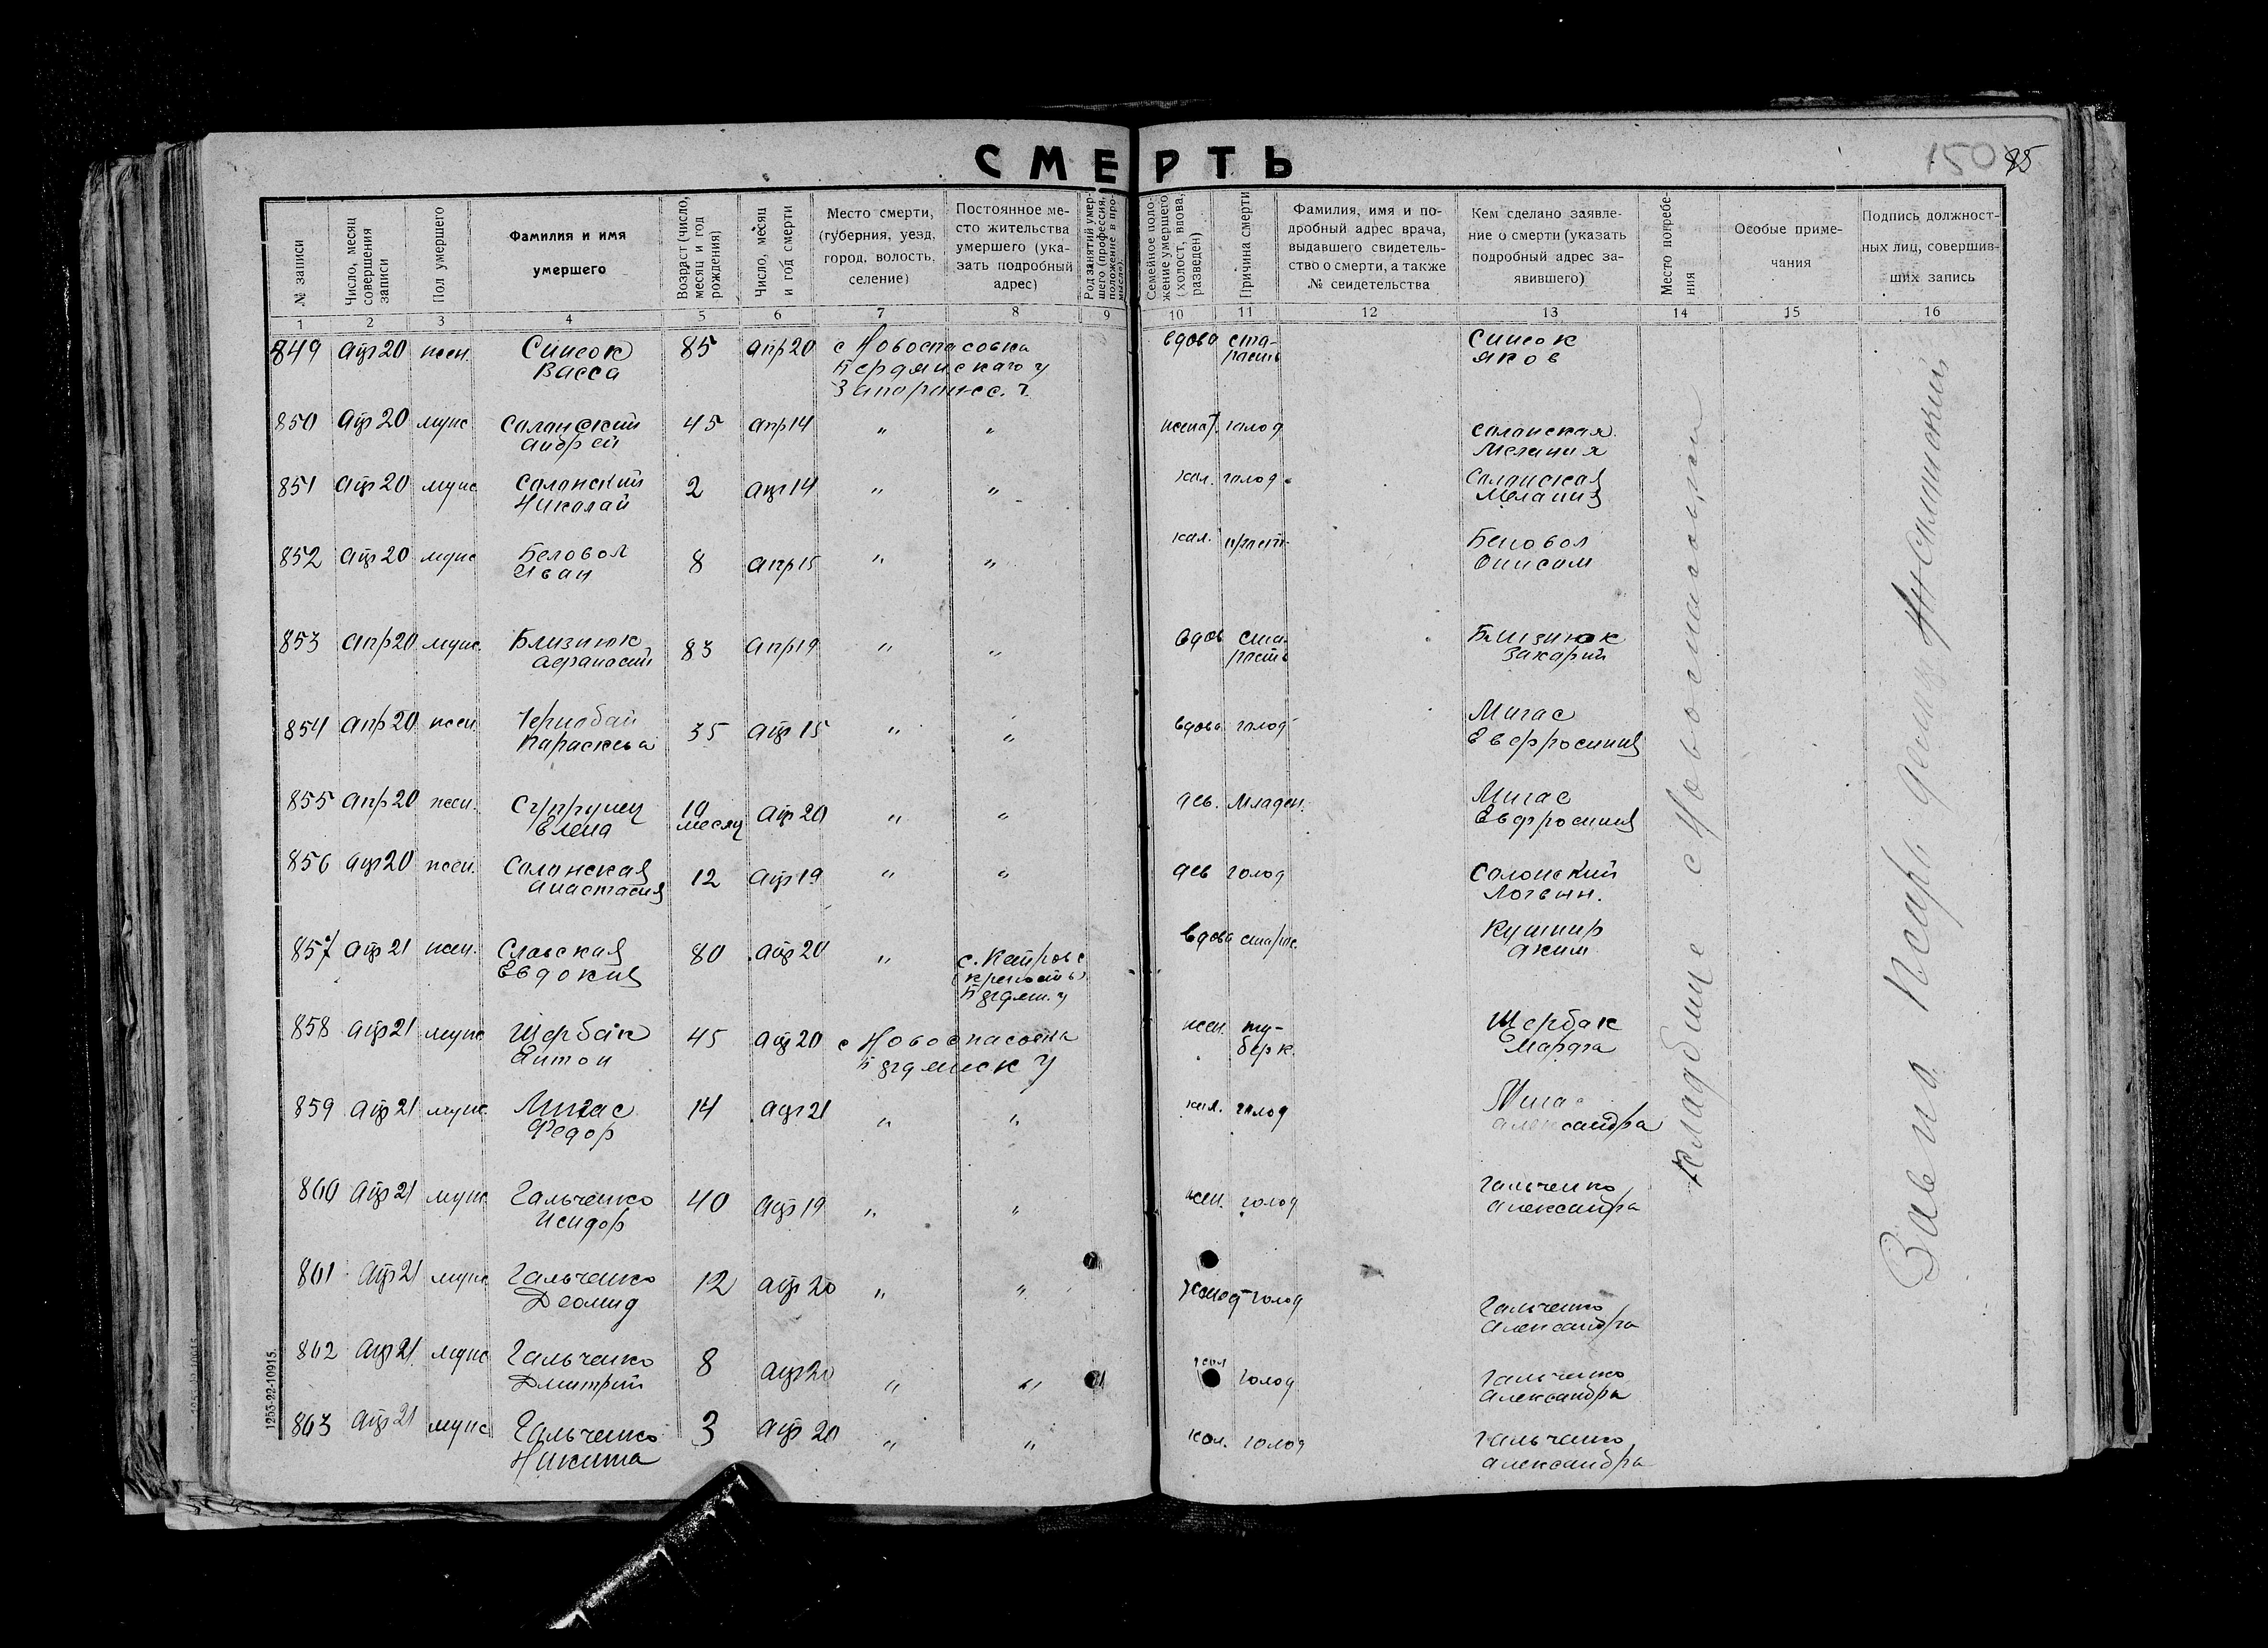 СМЕРТЬ
150 85
№ записи
Число, месяц
совершения
записи
Пол умершего
Фамилия и имя
умершего
Возраст (число,
месяц и год
рождения)
Число, месяц
и год смерти
Место смерти,
(губерния, уезд,
город, волость,
селение)
Постоянное ме-
сто жительства
умершего (ука-
зать подробный
адрес)
Род занятий умер-
шего (профессия,
положение в про-
мысле).
Семейное поло-
жение умершего
(холост, вдова,
разведен)
Причина смерти
Фамилия, имя и по-
дробный адрес врача,
выдавшего свидетель-
ство о смерти, а также
№ свидетельства
Кем сделано заявле-
ние о смерти (указать
подробный адрес за-
явившего)
Место погребе-
ния
Особые приме-
чания
Подпись должност-
ных лиц, совершив-
ших запись
1 2 3 4 5 6 7 8 9 10 11 12 13 14 15 16
849 апр 20 жен. Синсок 85 апр 20 с Новоспасовка вдова ста- Синсок
Васса Бердянскаго у рость Яков
Запорожс. г.
850 апр 20 муж Саланский 45 апр 14 " " женат. голод Саланская
Андрей Мелания
851 апр 20 муж Саланский 2 апр 14 " " хол. голод Саланская
Николай Мелания
852 апр 20 муж Беловол 8 апр 15 " " хол. Беловол
Иван Онисим
853 апр 20 муж Близнюк 83 апр 19 " " вдов ста- Близнюк
Афанасий рость Захарий
854 апр 20 жен. Чернобай 35 апр 15 " " вдова голод Мигас
Параскева Евфросиния
855 апр 20 жен. Супрунец 10 апр 20 " " дев. Младен. Мигас
Елена месяц Евфросиния
856 апр 20 жен. Саланская 12 апр 19 " " дев голод Солонский
Анастасия Логвин.
857 апр 21 жен. Славская 80 апр 20 " с. Петровс вдова старос. Кушнир
Евдокия (крепость) Аким
Бердян. у
858 апр 21 муж Щербак 45 апр 20 с Новоспасовка жен. ту- Щербак
Антон Бердянск у берк. Марфа
859 апр 21 муж Мигас 14 апр 21 " " хол. голод Мигас
Федор Александра
860 апр 21 муж Гальченко 40 апр 19 " " жен. голод Гальченко
Исидор Александра
861 апр 21 муж Гальченко 12 апр 20 " " холос голод Гальченко
Деомид Александра
862 апр 21 муж Гальченко 8 апр 20 " " хол голод Гальченко
Дмитрий Александра
863 апр 21 муж Гальченко 3 апр 20 " " хол. голод Гальченко
Никита Александра
Кладбище с Новоспасовки
Зав
1253-22-10915.